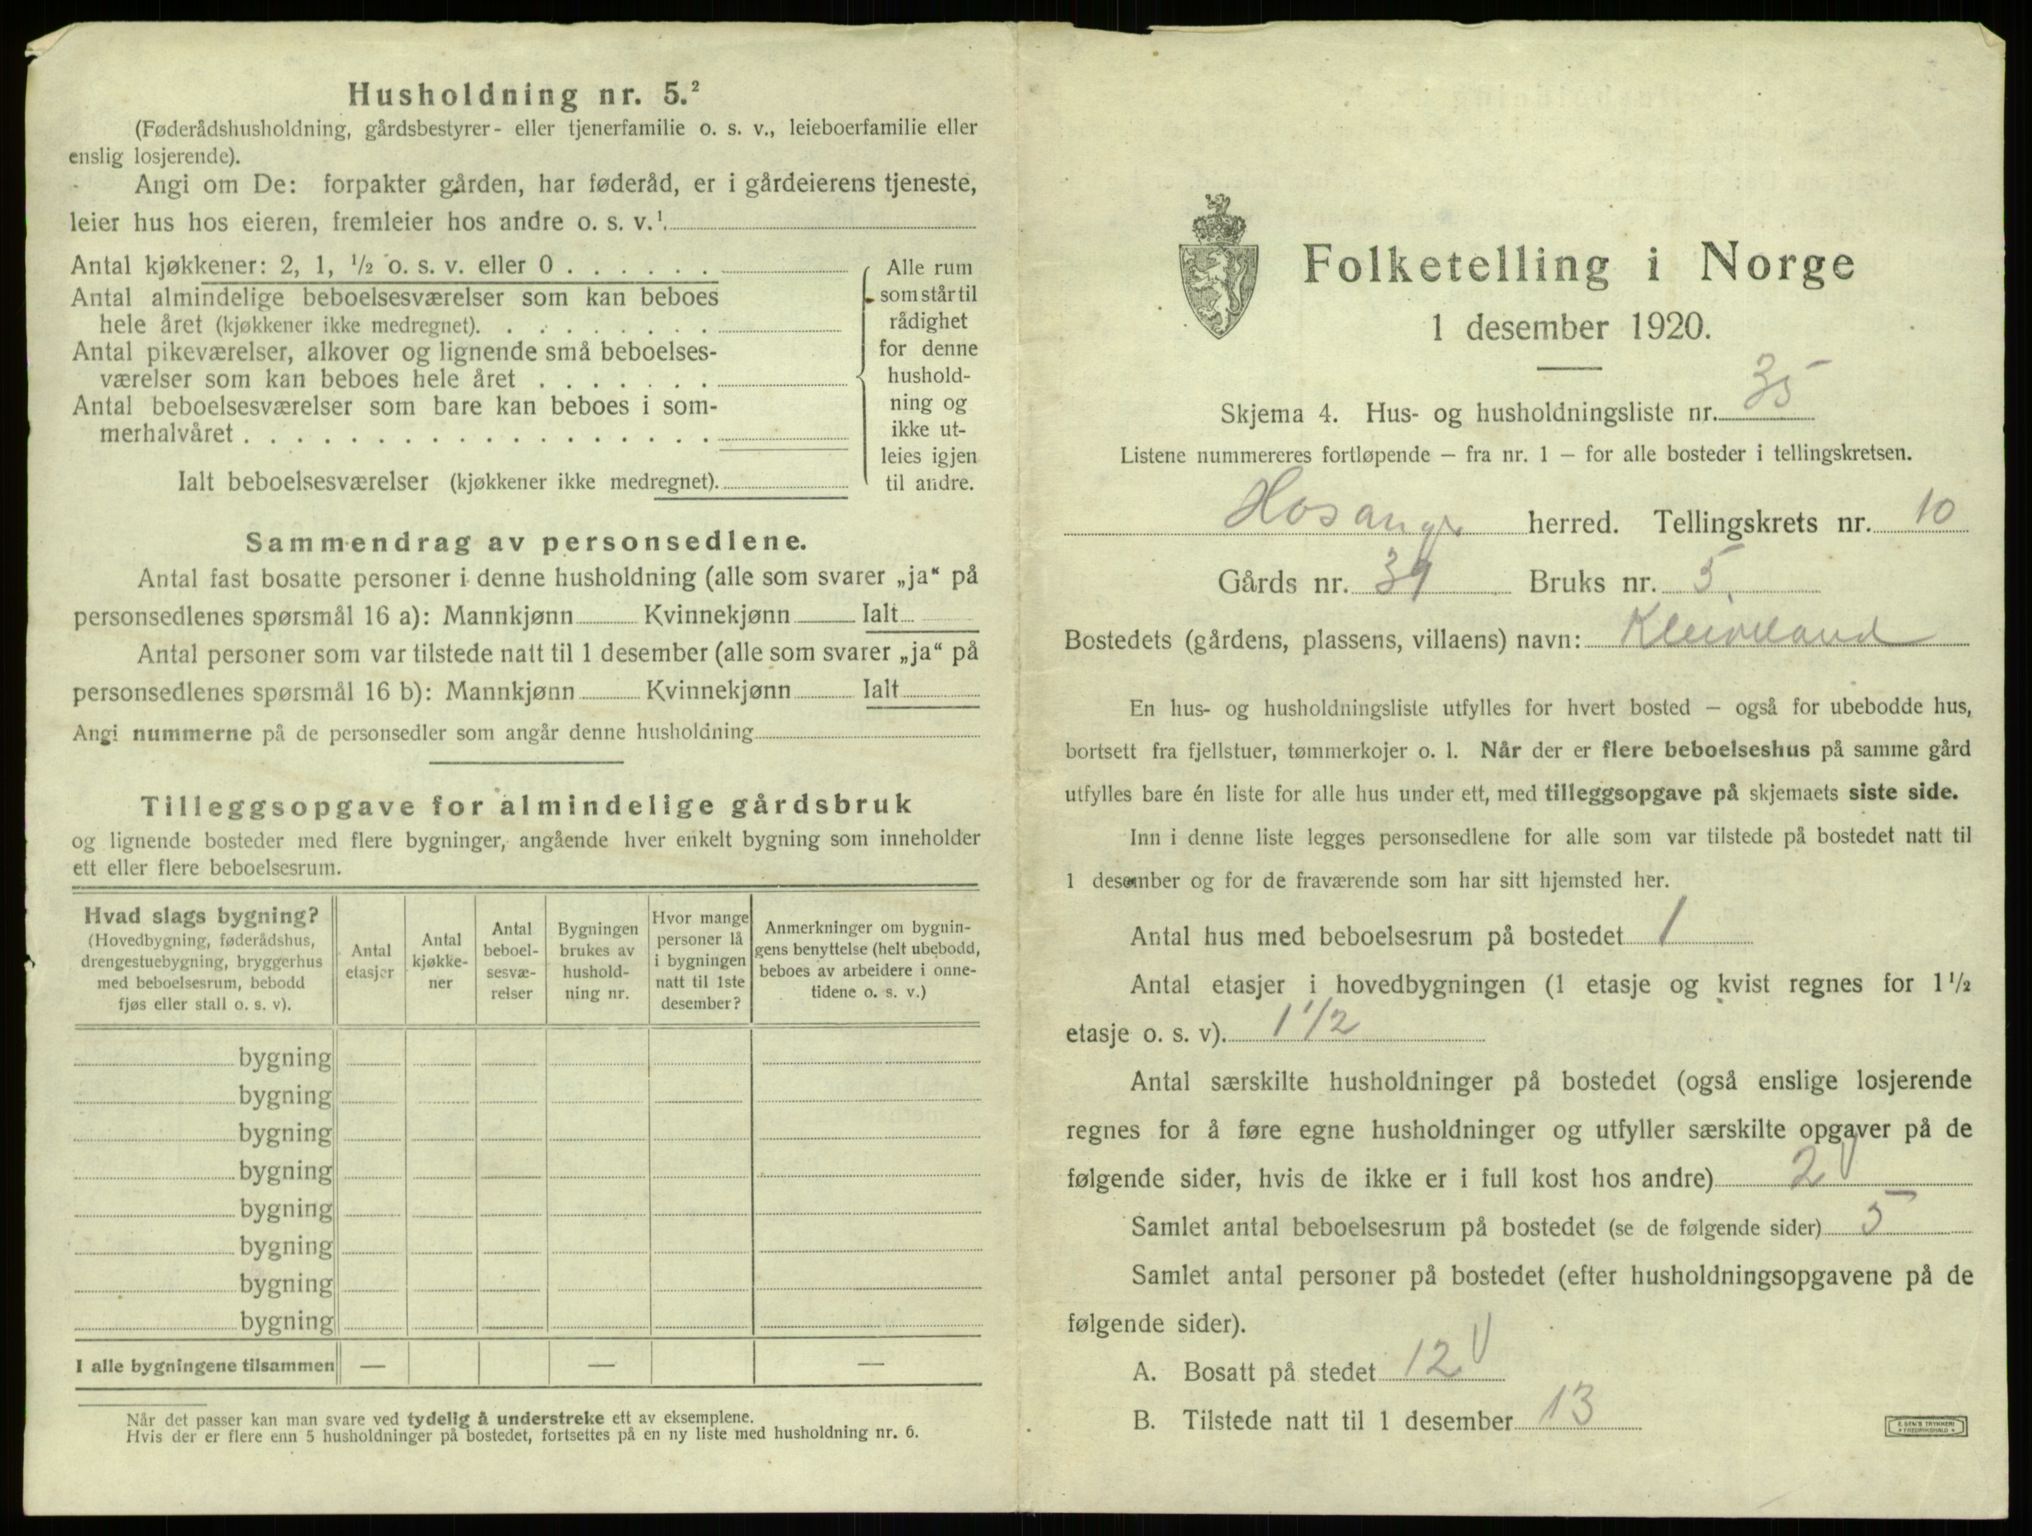 Husholdning nr. 5.²
(Føderådshusholdning, gårdsbestyrer- eller tjenerfamilie o. s. v., leieboerfamilie eller
enslig losjerende).
Angi om De: forpakter gården, har føderåd, er i gårdeierens tjeneste,
leier hus hos eieren, fremleier hos andre o. s. v.¹
Antal kjøkkener: 2, 1, ½ o. s. v. eller 0 . . . . . .
Antal almindelige beboelsesværelser som kan beboes
hele året (kjøkkener ikke medregnet). . . . . . . . .
Antal pikeværelser, alkover og lignende små beboelses-
værelser som kan beboes hele året . . . . . . .
Antal beboelsesværelser som bare kan beboes i som-
merhalvåret . . . . . . . . . . . . . . . . . .
Ialt beboelsesværelser (kjøkkener ikke medregnet).
Alle rum
som står til
rådighet
for denne
hushold-
ning og
ikke ut-
leies igjen
til andre.
Sammendrag av personsedlene.
Antal fast bosatte personer i denne husholdning (alle som svarer „ja“ på
personsedlenes spørsmål 16 a): Mannkjønn Kvinnekjønn Ialt
Antal personer som var tilstede natt til 1 desember (alle som svarer „ja“ på
personsedlenes spørsmål 16 b): Mannkjønn Kvinnekjønn Ialt
Angi nummerne på de personsedler som angår denne husholdning
Tilleggsopgave for almindelige gårdsbruk
og lignende bosteder med flere bygninger, angående hver enkelt bygning som inneholder
ett eller flere beboelsesrum.
Hvad slags bygning?
(Hovedbygning, føderådshus,
drengestuebygning, bryggerhus
med beboelsesrum, bebodd
fjøs eller stall o. s. v).
Antal
etasjer
Antal
kjøkke-
ner
Antal
beboel-
sesvæ-
relser
Bygningen
brukes av
hushold-
ning nr.
Hvor mange
personer lå
i bygningen
natt til 1ste
desember?
Anmerkninger om bygnin-
gens benyttelse (helt ubebodd,
beboes av arbeidere i onne-
tidene o. s. v.)
bygning
bygning
bygning
bygning
bygning
bygning
bygning
bygning
I alle bygningene tilsammen — — —
Når det passer kan man svare ved tydelig å understreke ett av eksemplene.
Hvis der er flere enn 5 husholdninger på bostedet, fortsettes på en ny liste med husholdning nr. 6.
Folketelling i Norge
1 desember 1920.
Skjema 4. Hus- og husholdningsliste nr. 35
Listene nummereres fortløpende — fra nr. 1 — for alle bosteder i tellingskretsen.
Hosanger herred. Tellingskrets nr. 10
Gårds nr. 39 Bruks nr. 5.
Bostedets (gårdens, plassens, villaens) navn: Kleiveland
En hus- og husholdningsliste utfylles for hvert bosted — også for ubebodde hus,
bortsett fra fjellstuer, tømmerkojer o. l. Når der er flere beboelseshus på samme gård
utfylles bare én liste for alle hus under ett, med tilleggsopgave på skjemaets siste side.
Inn i denne liste legges personsedlene for alle som var tilstede på bostedet natt til
1 desember og for de fraværende som har sitt hjemsted her.
Antal hus med beboelsesrum på bostedet 1
Antal etasjer i hovedbygningen (1 etasje og kvist regnes for 1 ½
etasje o. s. v). 1 1/2
Antal særskilte husholdninger på bostedet (også enslige losjerende
regnes for å føre egne husholdninger og utfyller særskilte opgaver på de
følgende sider, hvis de ikke er i full kost hos andre) 2
Samlet antal beboelsesrum på bostedet (se de følgende sider) 5
Samlet antal personer på bostedet (efter husholdningsopgavene på de
følgende sider).
A. Bosatt på stedet 12
B. Tilstede natt til 1 desember 13
E. SEM'S TRYKKERI
FREDRIKSHALD